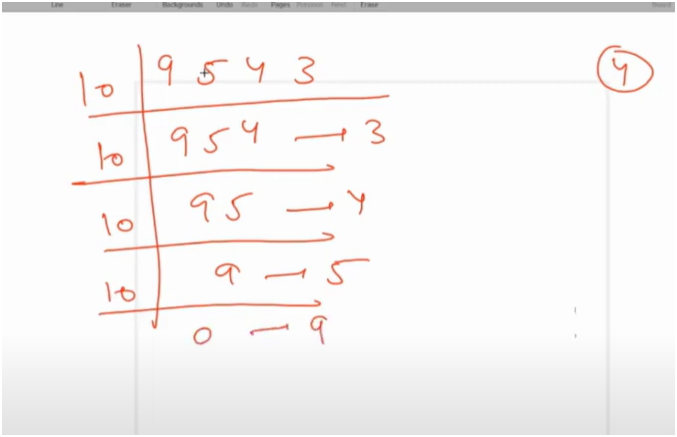 Line Eraser Backgrounds Undo Redo Pages Previous Next Erase Board
10 9 5 4 3 4
10 9 5 4 — 3
10 9 5 — 4
10 9 — 5
0 — 9